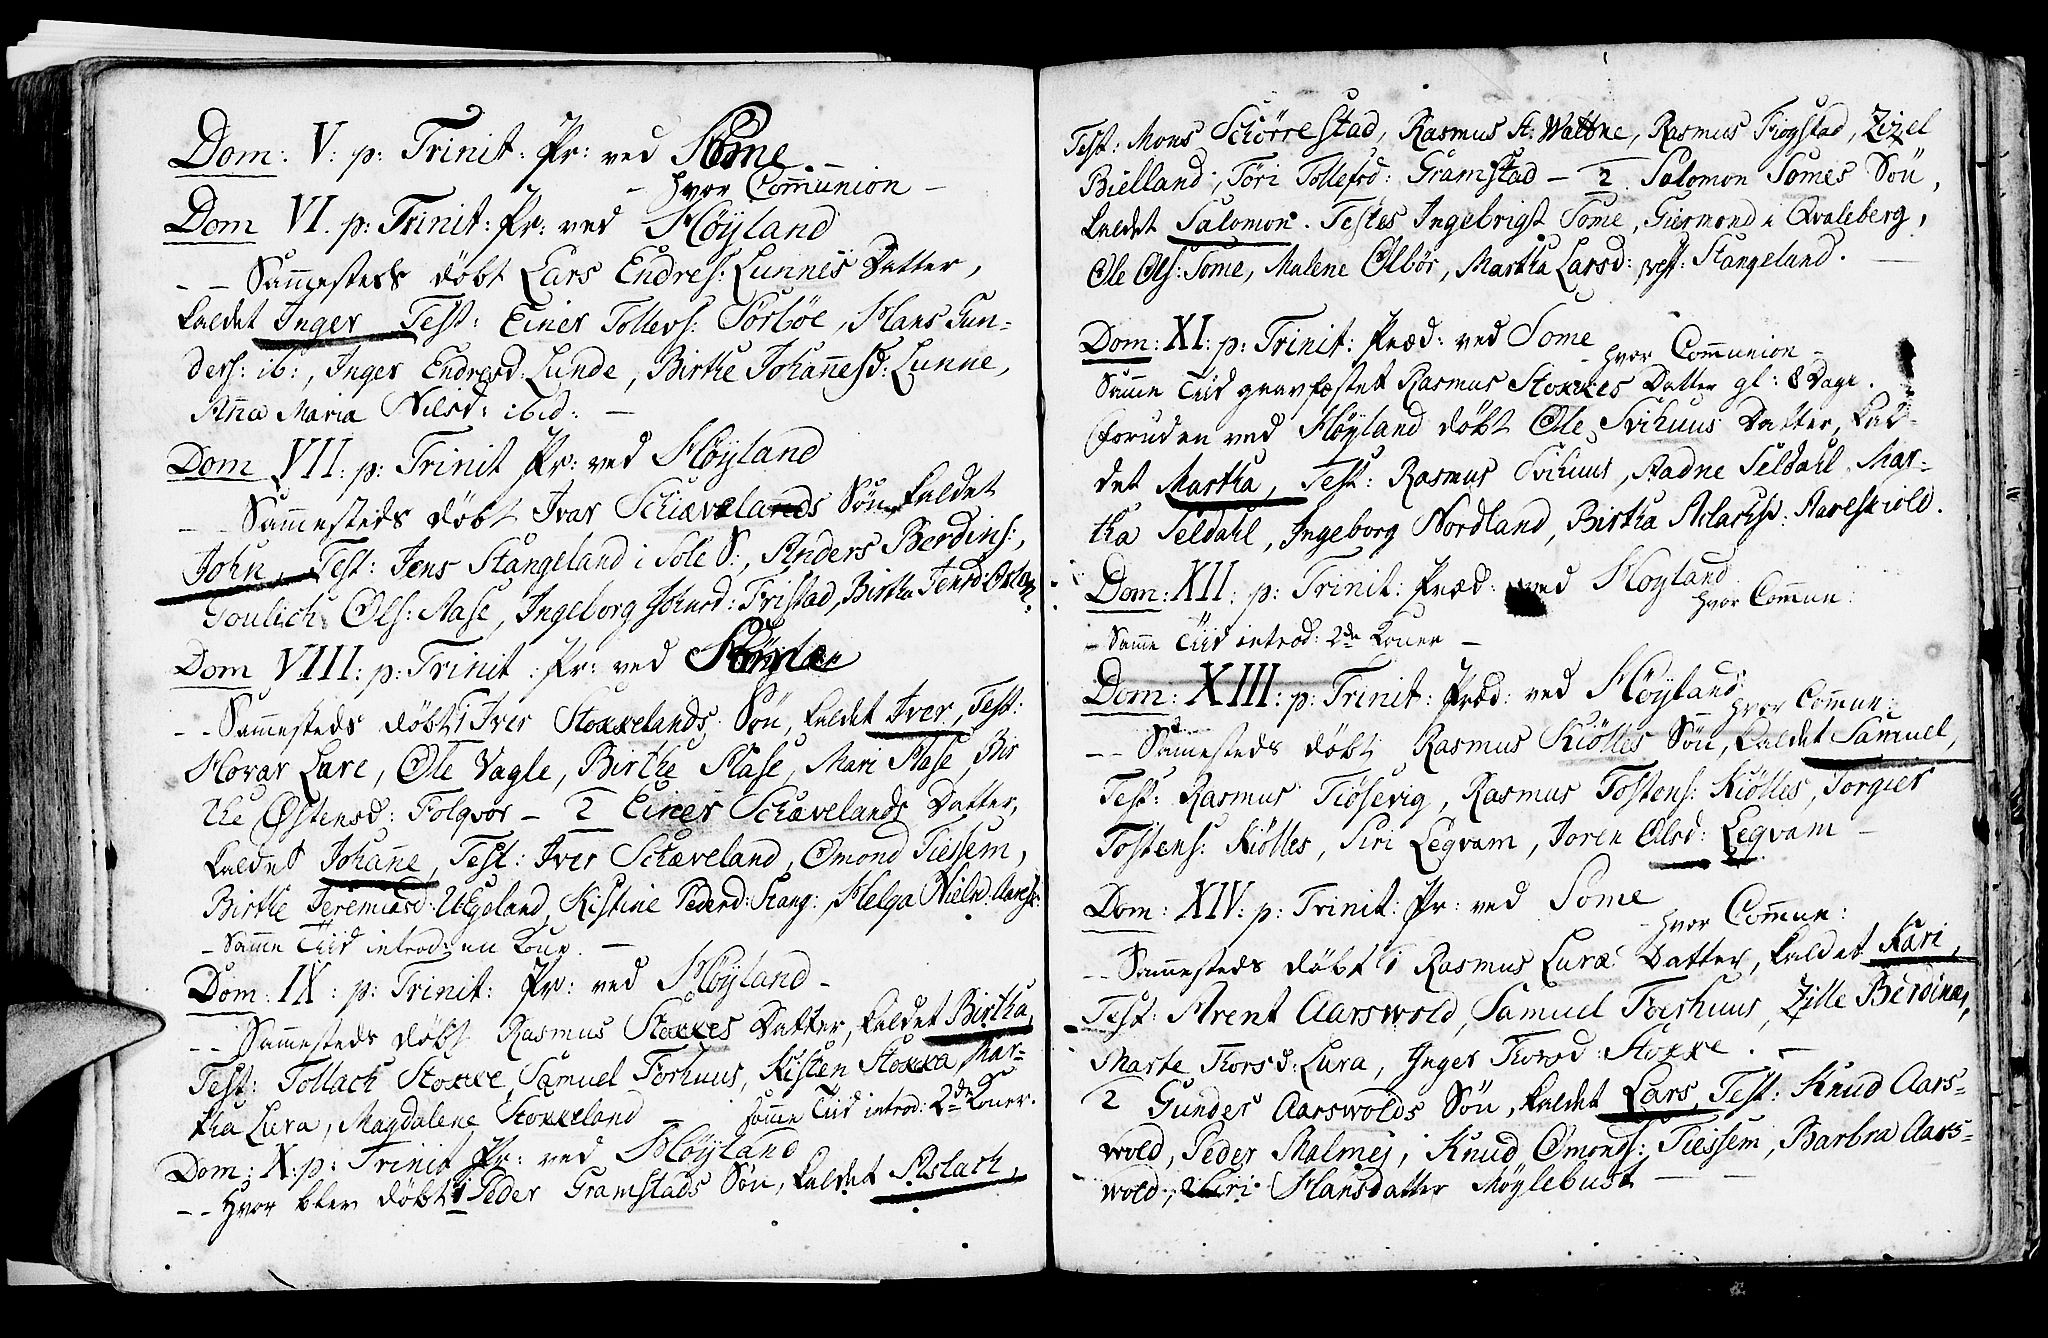 Dom: V: p: Trinit: Pr: ved Some. –
– hvor Com̅union –
Dom VI. p: Trinit: Pr: ved Höyland
– – Sam̅esteds döbt Lars Endres: Lunnes Datter,
kaldet Inger Test: Einer Tollevs: Sörböe, Hans Gun-
ders: ib:, Inger Endresd: Lunde, Birthe Johan̅esd: Lunne,
An̅a Maria Nilsd: ibid: –
Dom VII: p: Trinit Pr: ved Höyland
– – Sam̅esteds döbt Ivar Schiævelands Sön kaldet
John, Test: Jens Stangeland i Sole S:, Anders Berdins:,
Goulich Ols: Aase, Ingeborg Johnsd: Fristad, Birtha Jensd:
Dom VIII: p: Trinit: Pr: ved
– – Sam̅esteds döbt 1 Iver Stokkelands Sön, kaldet Iver, Test:
Hovar Lare, Ole Vagle, Birthe Aase, Mari Aase, Bir
the Östensd: Folqvor – 2 Einer Schævelands Datter,
kaldet Johan̅e, Test: Iver Schæveland, Omond Tiessem,
Birthe Jeremiasd: Uegeland, Kistine Pedersd: Stang:, Helga Nielsd:
– Sam̅e Tiid introd: en Kone. –
Dom: IX: p: Trinit: Pr: ved Höyland –
– – Sam̅esteds döbt Rasmus Stokkes Datter, kaldet Birtha,
Test: Tollach Stokke, Samuel Forhuus, Kisten Stokka, Mar-
tha Lura, Magdalene Stokkeland – Sam̅e Tiid introd: 2de Koner.
Dom: X: p: Trinit Pr: ved Höyland
– – hvor blev döbt 1 Peder Gramstads Sön, kaldet Aslach,
Test: Mons Schörrestad, Rasmus St: Wattne, Rasmus Fiogstad, Zizel
Bielland, Töri Tollefsd: Gramstad – 2 Salomon Somes Sön,
kaldet Salomon. Testes Ingebrigt Some, Giermond Qvaleberg,
Ole Ols: Some, Malene Olbör, Martha Larsd: vest: Stangeland. –
Dom: XI: p: Trinit: Præd: ved Some
– hvor Com̅union –
Sam̅e Tiid gravfæstet Rasmus Stokkes Datter gl: 8 Dage.
foruden ved Höyland döbt Ole Svihuus Datter, kal-
det Martha, Test: Rasmus Svihuus, Aadne Seldahl, Mar-
tha Seldahl, Ingeborg Nordland, Birtha Aslachsd: Aareskiold.
Dom: XII: p: Trinit: Præd: ved Höyland
hvor Com̅un:
– Sam̅e Tiid introd: 2de Koner –
Dom: XIII: p: Trinit: Præd: ved Höyland
hvor Com̅un:
– – Sam̅esteds döbt Rasmus Kiölles Sön, kaldet Samuel,
Test: Rasmus Tiösevig, Rasmus Tostens: Kiölles, Torgier
Tostens: Kiölles, Siri Legvam, Joren Olsd: Legvam –
Dom: XIV: p: Trinit: Pr: ved Some
– hvor Com̅un:
– – Sam̅esteds döbt 1 Rasmus Luræ Datter, kaldet Kari,
Test: Arent Aarswold, Samuel Foerhuus, Zille Berdines,
Marte Thorsd: Lura, Inger Thorsd: Stokke. –
2 Gunder Aarswolds Sön, kaldet Lars, Test: Knud Aars-
wold, Peder Malmej, Knud Omonds: Tiessem, Barbra Aars-
wold, Siri Hansdatter Möylebust – –